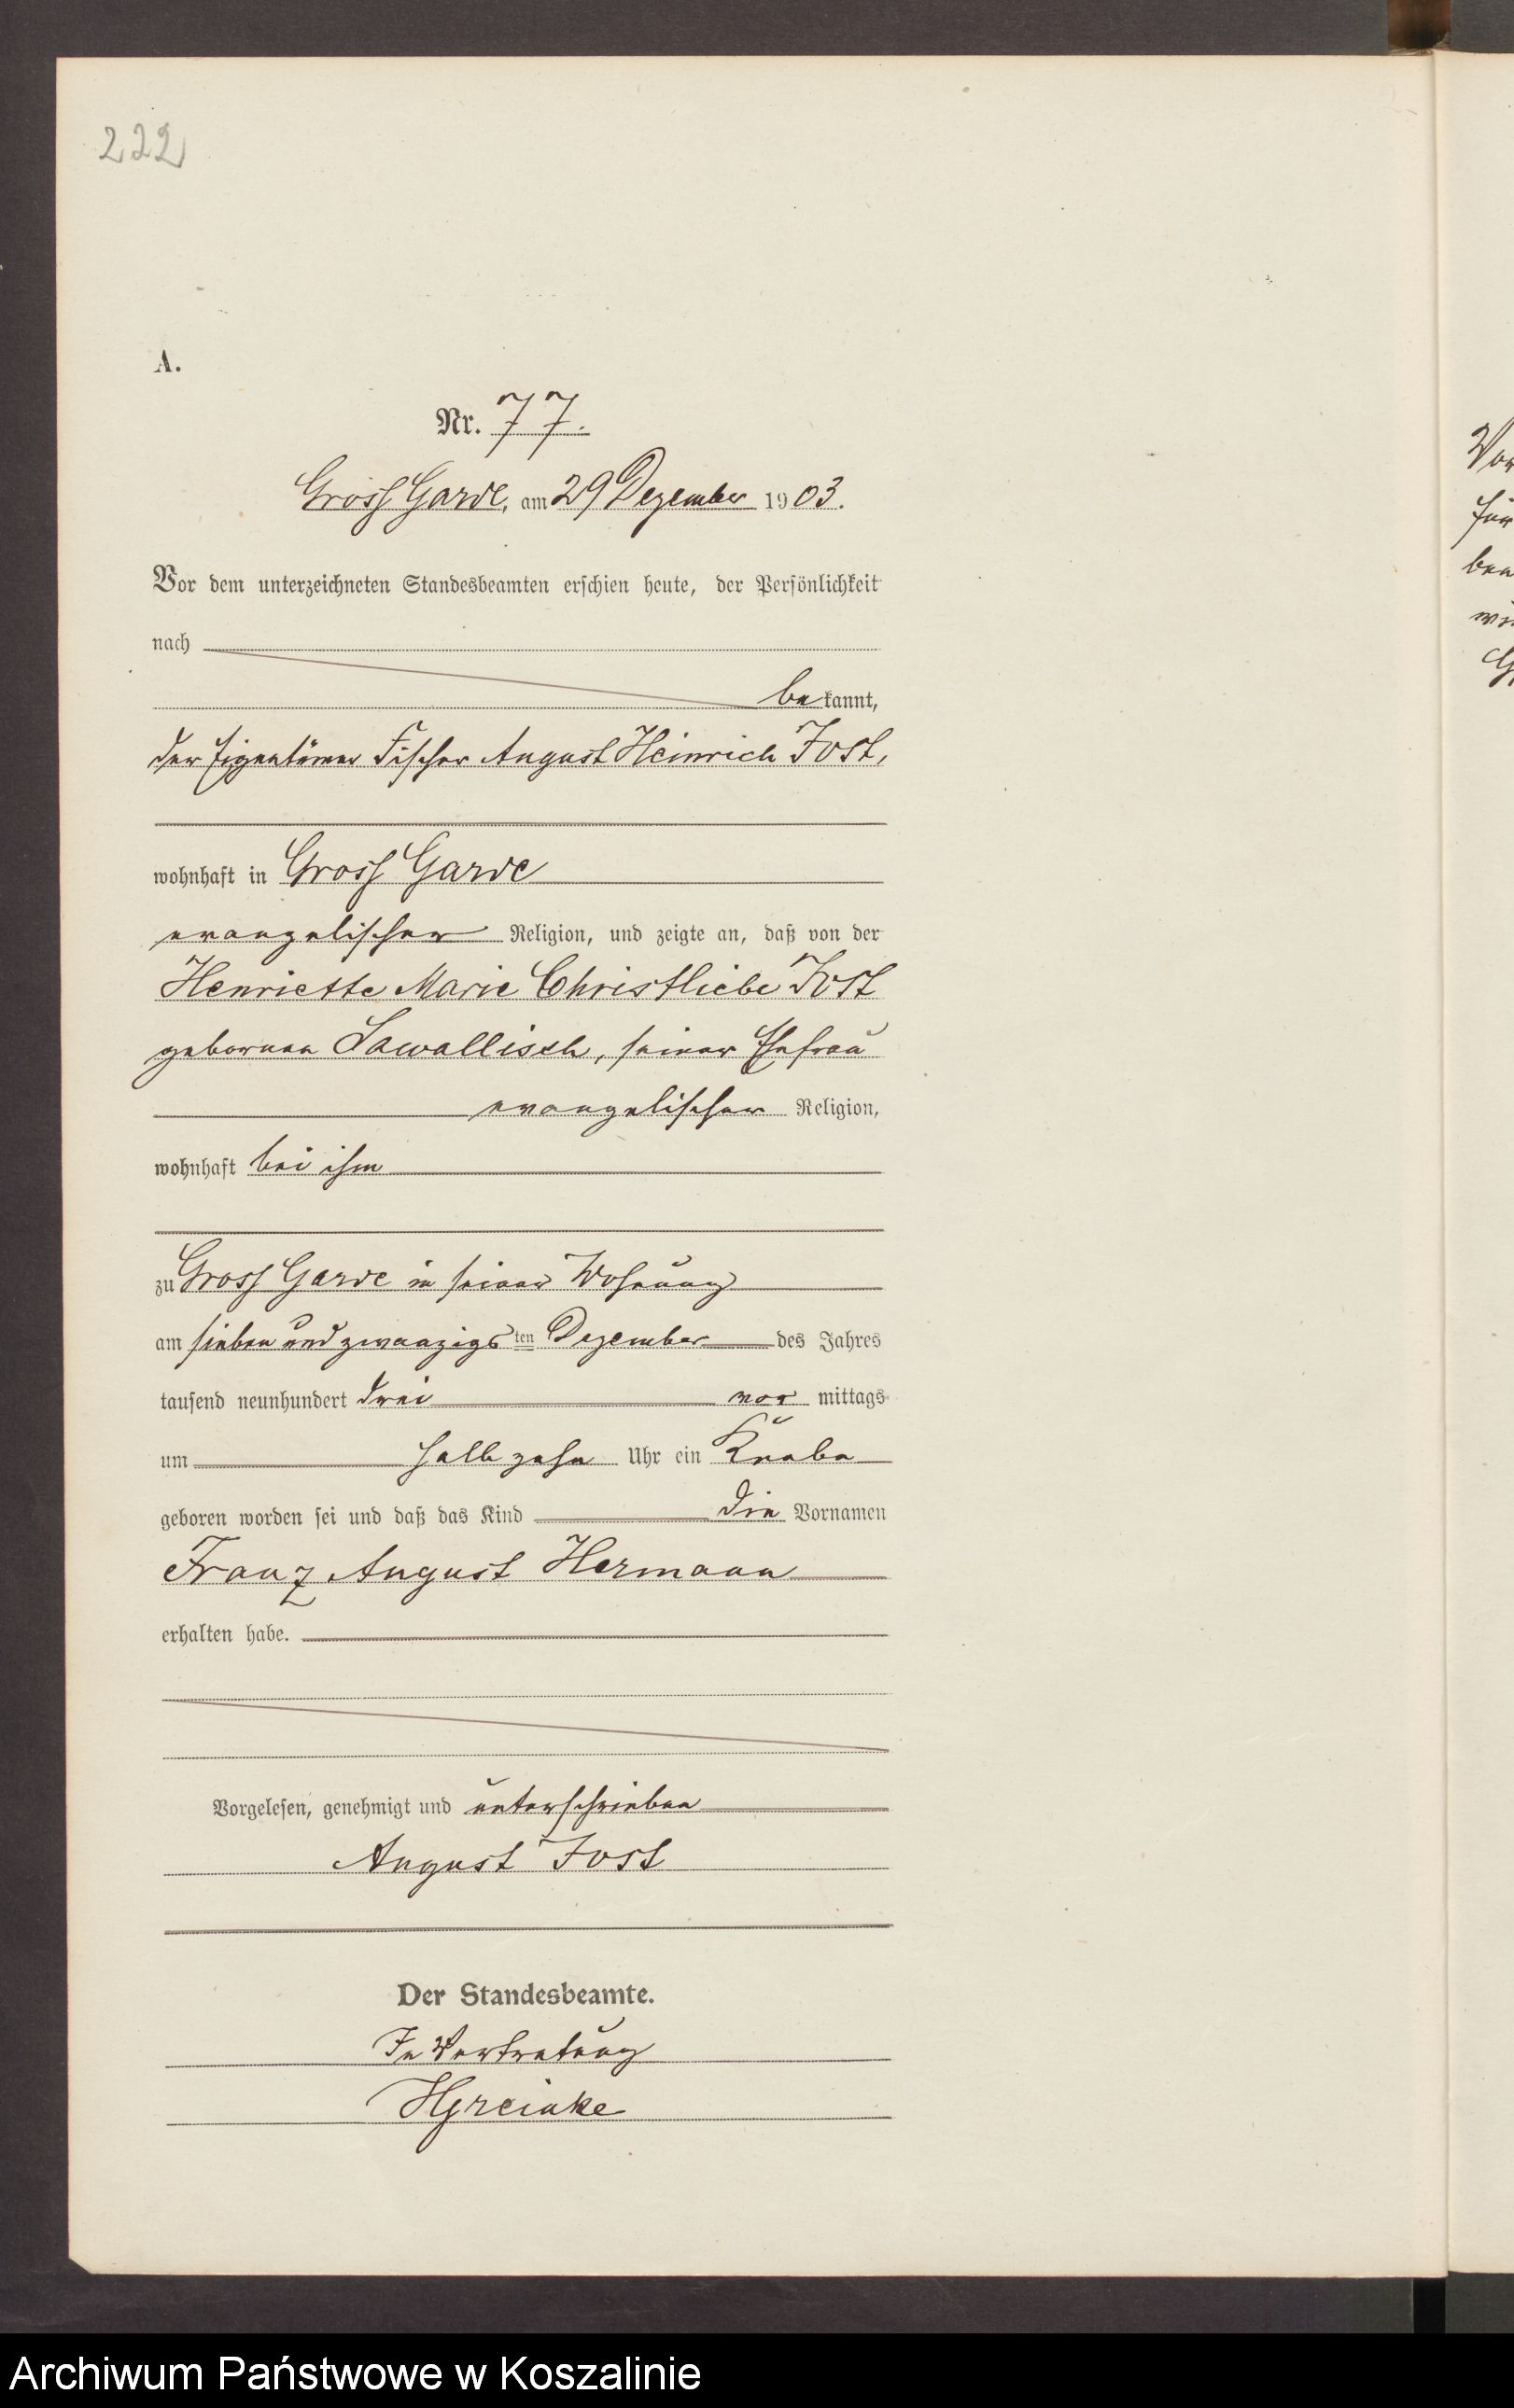 222
A.
Nr. 77.
Gross Garde, am 29 Dezember 1903.
Vor dem unterzeichneten Standesbeamten erschien heute, der Persönlichkeit
nach
bekannt,
der Eigentümer Fischer August Heinrich Jost,
wohnhaft in Gross Garde
evangelischer Religion, und zeigte an, daß von der
Henriette Marie Christliebe Jost
gebornen Sawallisch, seiner Ehefrau
evangelischer Religion,
wohnhaft bei ihm
zu Gross Garde in seiner Wohnung
am sieben und zwanzigsten Dezember des Jahres
tausend neunhundert drei vor mittags
um halb zehn Uhr ein Knabe
geboren worden sei und daß das Kind die Vornamen
Franz August Hermann
erhalten habe.
Vorgelesen, genehmigt und unterschrieben
August Jost
Der Standesbeamte.
In Vertretung
Archiwum Państwowe w Koszalinie